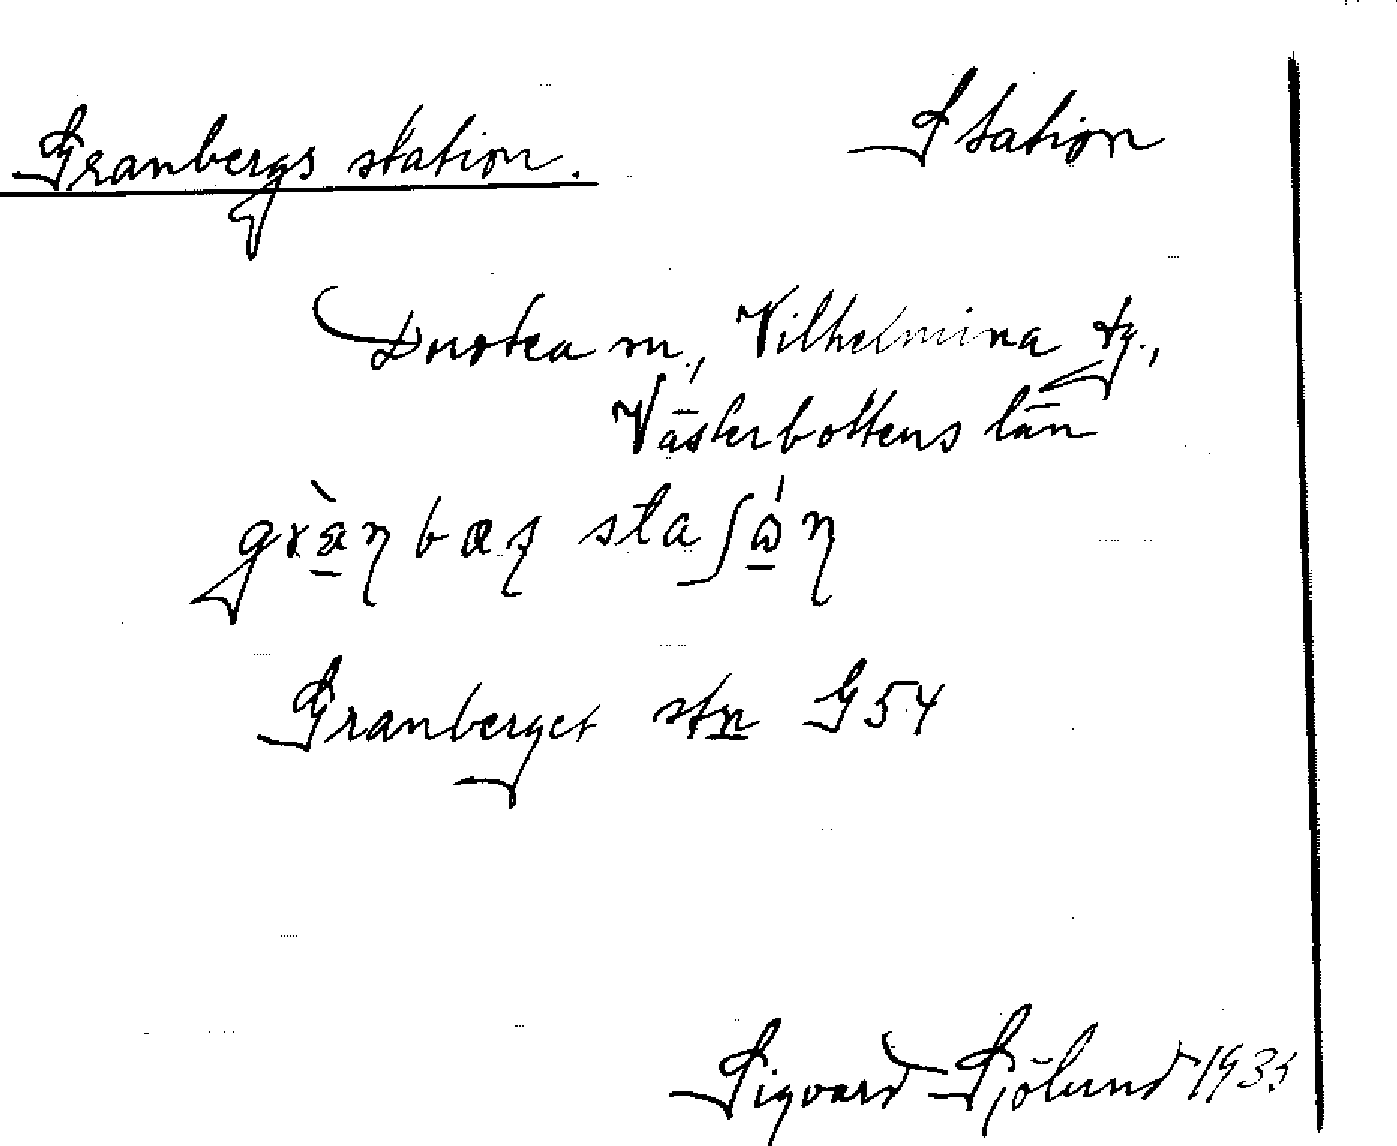 Granbergs station. Station
Dorotea sn., Vilhelmina tg.,
Västerbottens län
grànbæʂ staʃώ̲n
Granberget stn G54
Sigvard Sjölund 1935